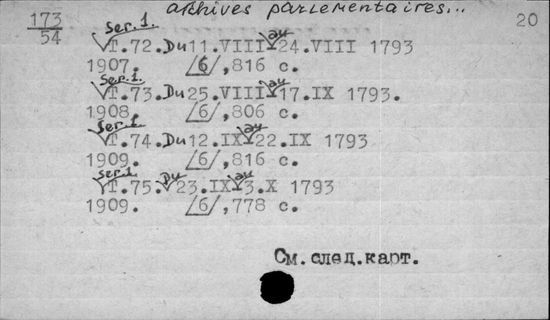 archives parlementaires...
173
54
20
Ser. 1.
T.72. Du 11.VIII au 24.VIII 1793
1907. /6/,816 с.
Ser. 1.
T.73. Du 25.VIII au 17.IX 1793.
1908. /6/,806 с.
Ser. 1.
T.74. Du 12.IX au 22.IX 1793
1909. /6/,816 с.
Ser. 1.
T.75. Du 23.IX au 3.X 1793
1909. /6/,778 с.
См. след. карт.